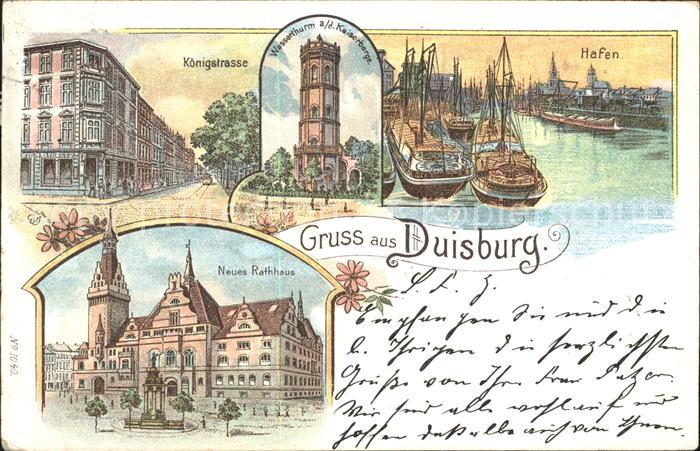 Königstrasse
Wasserthurm a/d. Kaiserberge.
Hafen.
Gruss aus Duisburg.
Neues Rathhaus
No 1040.
L. F. H.
Empfangen Sie und die
l. Ihrigen die herzlichsten
Grüße von Ihrer Frau
Wir sind alle wohlauf und
hoffen daß alle auch von Ihnen.